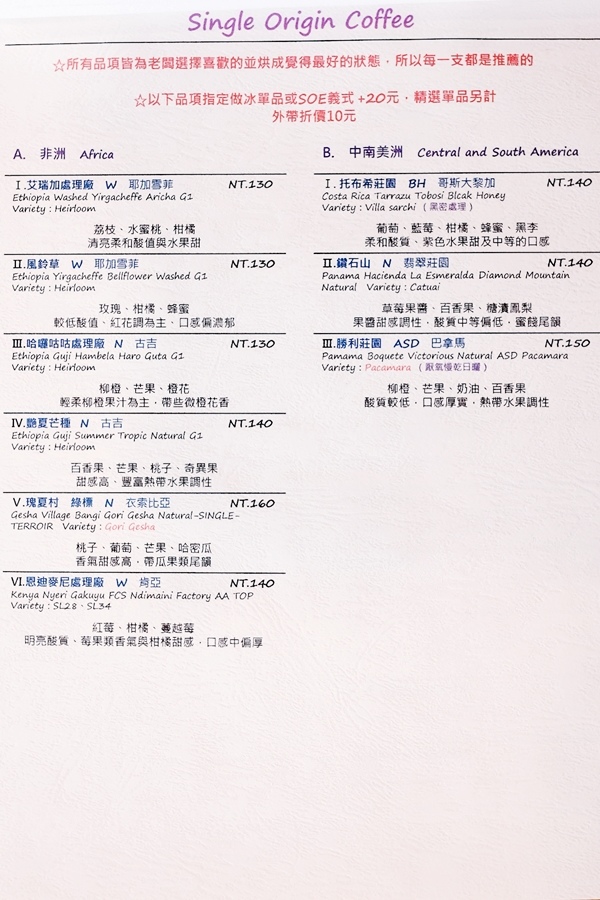 Single Origin Coffee
☆所有品項皆為老闆選擇喜歡的並烘成覺得最好的狀態，所以每一支都是推薦的
☆以下品項指定做冰單品或SOE義式 +20元，精選單品另計
外帶折價10元
A. 非洲 Africa
Ⅰ.艾瑞加處理廠 W 耶加雪菲 NT.130
Ethiopia Washed Yirgacheffe Aricha G1
Variety : Heirloom
荔枝、水蜜桃、柑橘
清亮柔和酸值與水果甜
Ⅱ.風鈴草 W 耶加雪菲 NT.130
Ethiopia Yirgacheffe Bellflower Washed G1
Variety : Heirloom
玫瑰、柑橘、蜂蜜
較低酸值、紅花調為主、口感偏濃郁
Ⅲ.哈囉咕咕處理廠 N 古吉 NT.130
Ethiopia Guji Hambela Haro Guta G1
Variety : Heirloom
柳橙、芒果、橙花
輕柔柳橙果汁為主，帶些微橙花香
Ⅳ.艷夏芒種 N 古吉 NT.140
Ethiopia Guji Summer Tropic Natural G1
Variety : Heirloom
百香果、芒果、桃子、奇異果
甜感高、豐富熱帶水果調性
Ⅴ.瑰夏村 綠標 N 衣索比亞 NT.160
Gesha Village Bangi Gori Gesha Natural-SINGLE-
TERROIR Variety : Gori Gesha
桃子、葡萄、芒果、哈密瓜
香氣甜感高，帶瓜果類尾韻
Ⅵ.恩迪麥尼處理廠 W 肯亞 NT.140
Kenya Nyeri Gakuyu FCS Ndimaini Factory AA TOP
Variety : SL28、SL34
紅莓、柑橘、蔓越莓
明亮酸質、莓果類香氣與柑橘甜感，口感中偏厚
B. 中南美洲 Central and South America
Ⅰ.托布希莊園 BH 哥斯大黎加 NT.140
Costa Rica Tarrazu Tobosi Blcak Honey
Variety : Villa sarchi （黑蜜處理）
葡萄、藍莓、柑橘、蜂蜜、黑李
柔和酸質、紫色水果甜及中等的口感
Ⅱ.鑽石山 N 翡翠莊園 NT.140
Panama Hacienda La Esmeralda Diamond Mountain
Natural Variety : Catuai
草莓果醬、百香果、糖漬鳳梨
果醬甜感調性，酸質中等偏低，蜜餞尾韻
Ⅲ.勝利莊園 ASD 巴拿馬 NT.150
Pamama Boquete Victorious Natural ASD Pacamara
Variety : Pacamara （厭氧慢乾日曬）
柳橙、芒果、奶油、百香果
酸質較低，口感厚實，熱帶水果調性